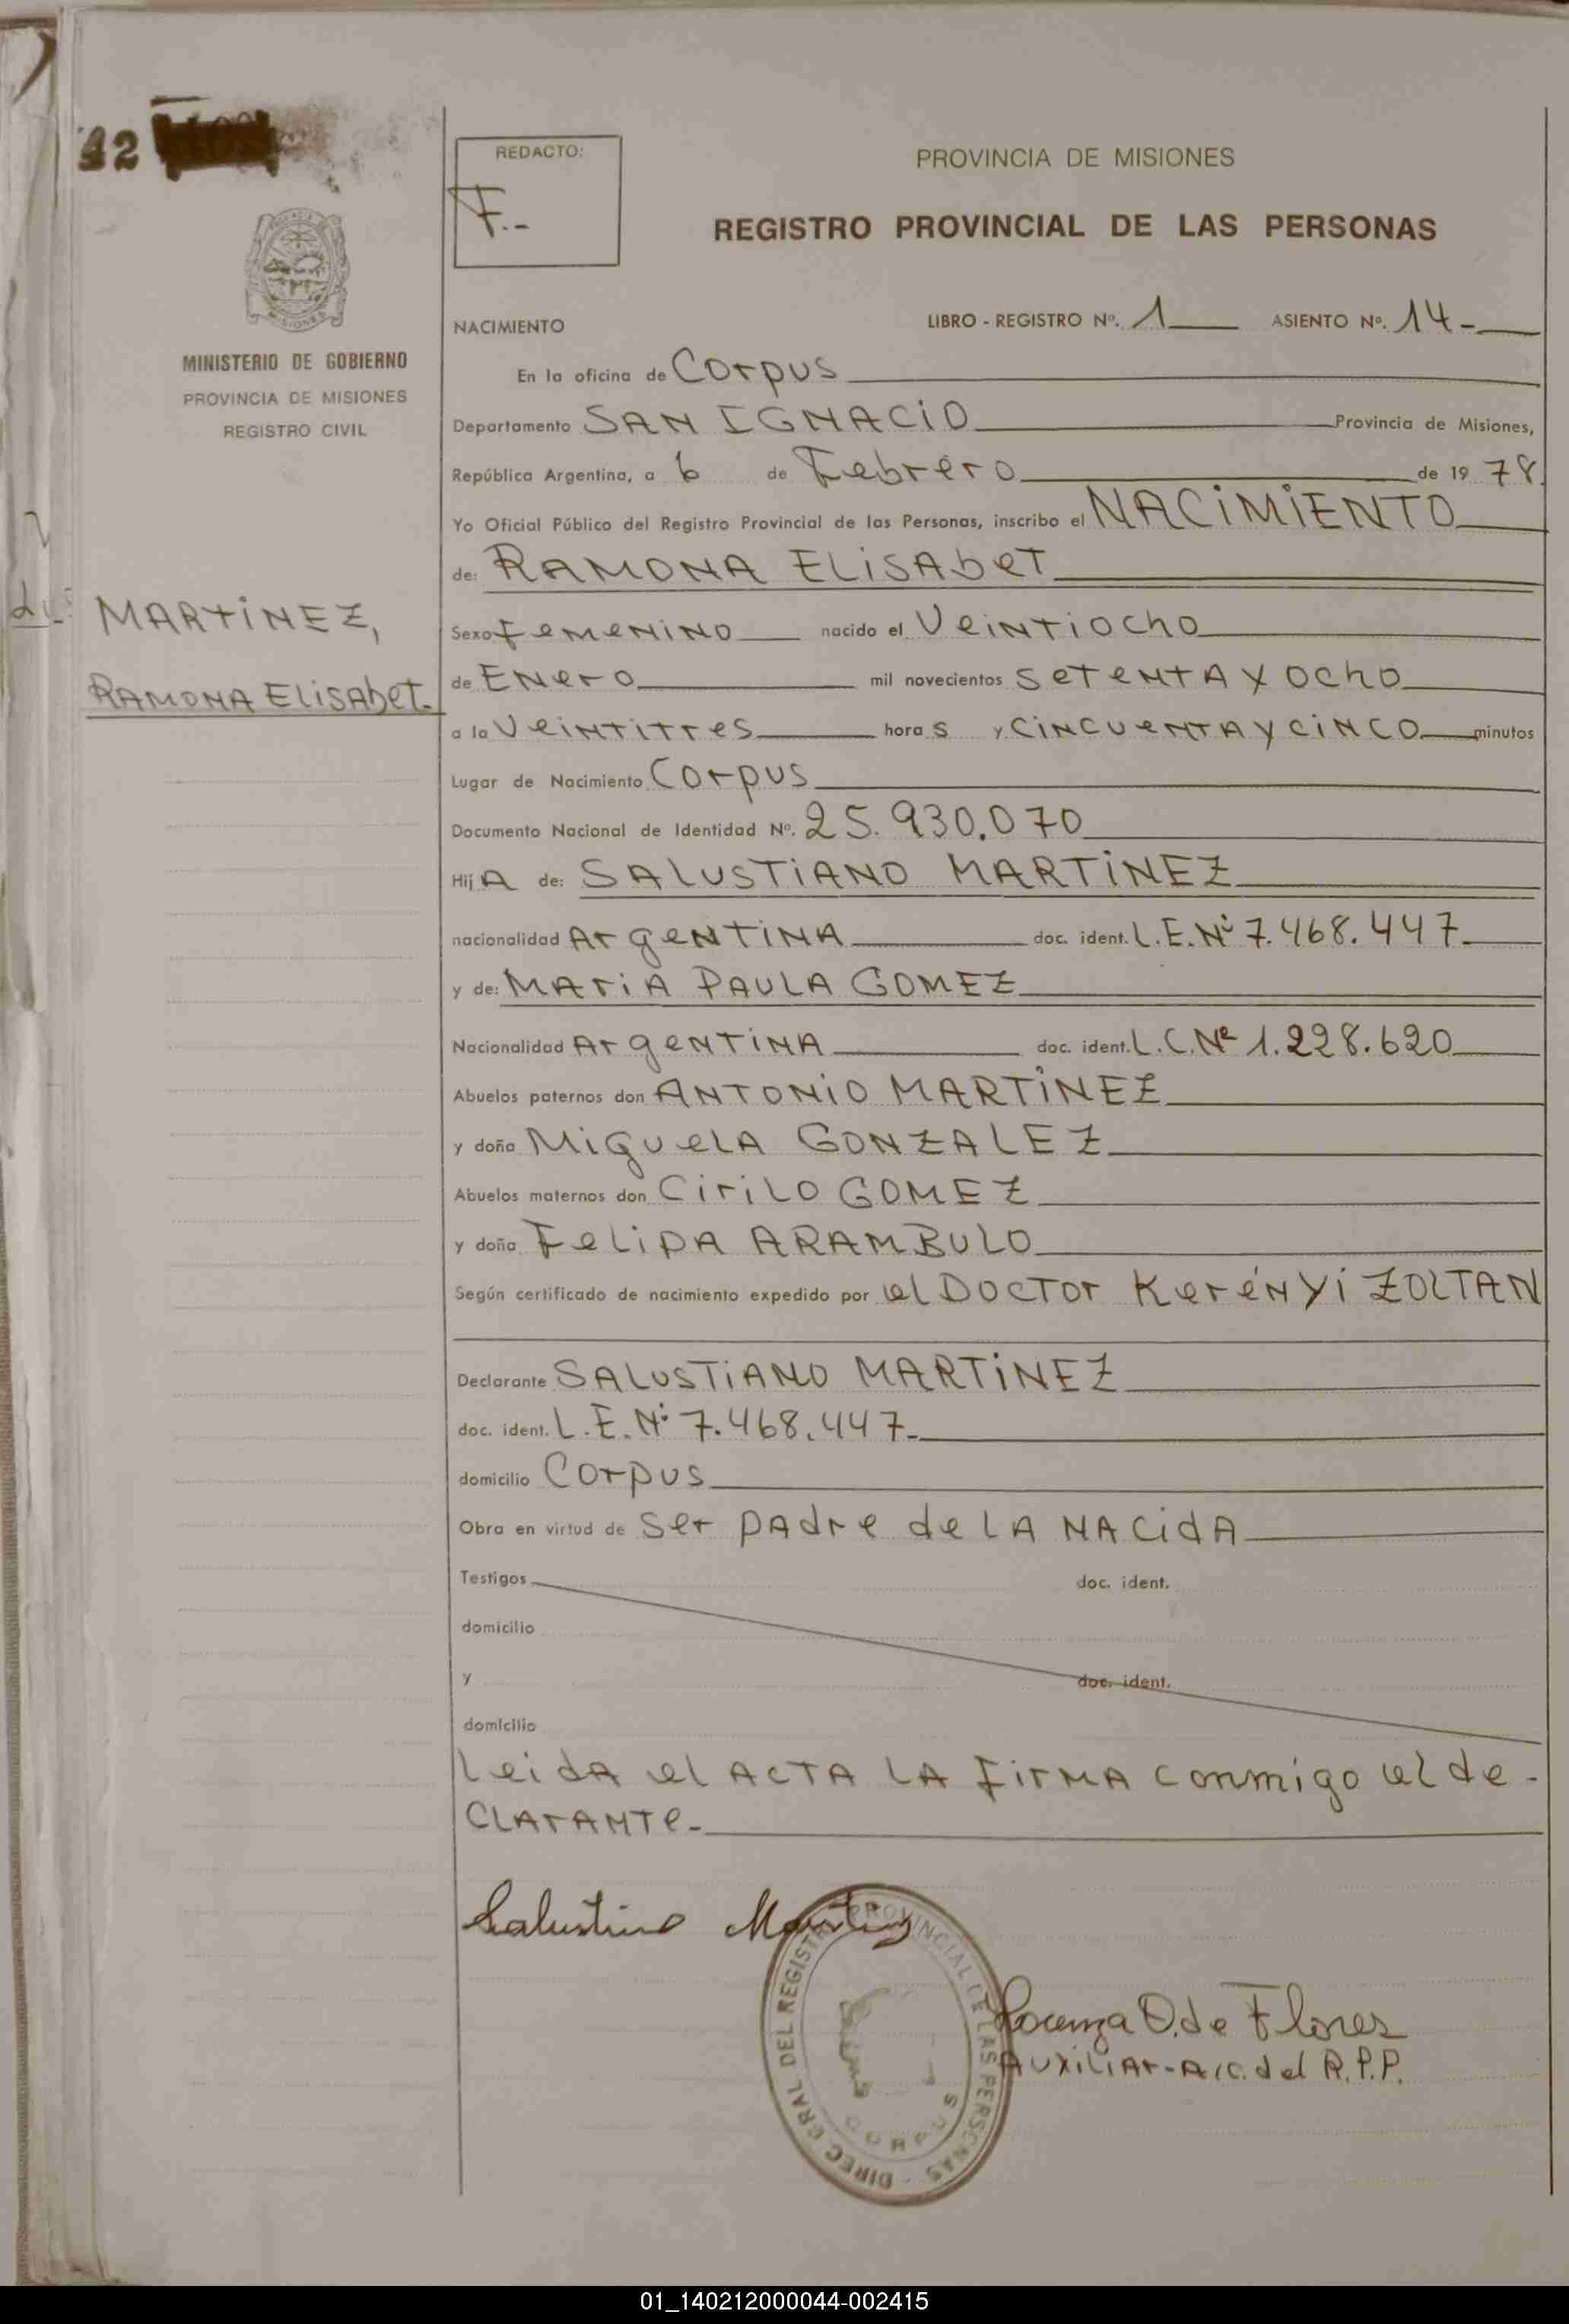 42
REDACTO:
F.-
PROVINCIA DE MISIONES
REGISTRO PROVINCIAL DE LAS PERSONAS
MISIONES
MINISTERIO DE GOBIERNO
PROVINCIA DE MISIONES
REGISTRO CIVIL
MARTINEZ,
RAMONA ELISAbet.
NACIMIENTO
LIBRO - REGISTRO Nº. 1 ASIENTO Nº. 14-
En la oficina de Corpus
Departamento SAN IGNACIO Provincia de Misiones,
República Argentina, a 6 de Febrero de 19 78
Yo Oficial Público del Registro Provincial de las Personas, inscribo el NACIMIENTO
de: RAMONA ELISAbeT
Sexo FeMeNINO nacido el VeINTIOcho
de ENero mil novecientos SeTeNTA Y Ocho
a la VeINTITres hora s y CINCUeNTA Y CINCO minutos
Lugar de Nacimiento Corpus
Documento Nacional de Identidad Nº. 25.930.070
Hij A de: SALUSTIANO MARTINEZ
nacionalidad ArgeNTINA doc. ident. L.E.Nº 7.468.447-
y de: MArIA PAULA GOMEZ
Nacionalidad ArgeNTINA doc. ident. L.C.Nº 1.228.620
Abuelos paternos don ANTONIO MARTINEZ
y doña MIgUeLA GONZALEZ
Abuelos maternos don CIrILO GOMEZ
y doña FeLIPA ARAMBULO
Según certificado de nacimiento expedido por el DOCTOr KeréNYI ZOLTAN
Declarante SALUSTIANO MARTINEZ
doc. ident. L.E.Nº 7.468.447-
domicilio Corpus
Obra en virtud de Ser pAdre de LA NACidA
Testigos doc. ident.
domicilio
y doc. ident.
domicilio
Leida el ACTA LA FirMA conmigo el de-
CLArANTe-
Salustiano Martinez
DIREC. GRAL. DEL REGISTRO PROVINCIAL DE LAS PERSONAS
CORPUS
O. de Flores
AUXILIAr-A/C. del R.P.P.
01_140212000044-002415